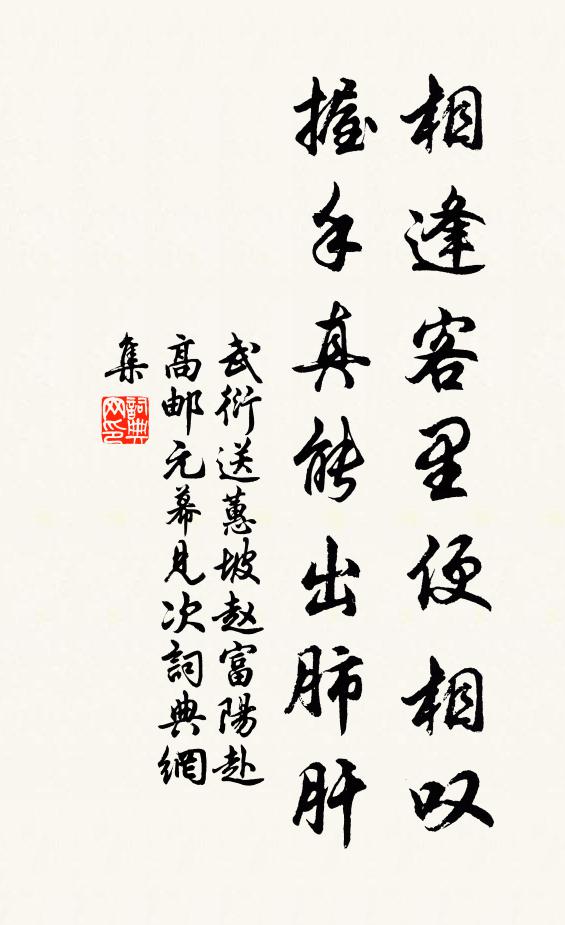 相逢客里便相叹
握手真能出肺肝
武衍送蕙坡赵富陽赴
高邮元幕見次詞典網
集
詞典
网印